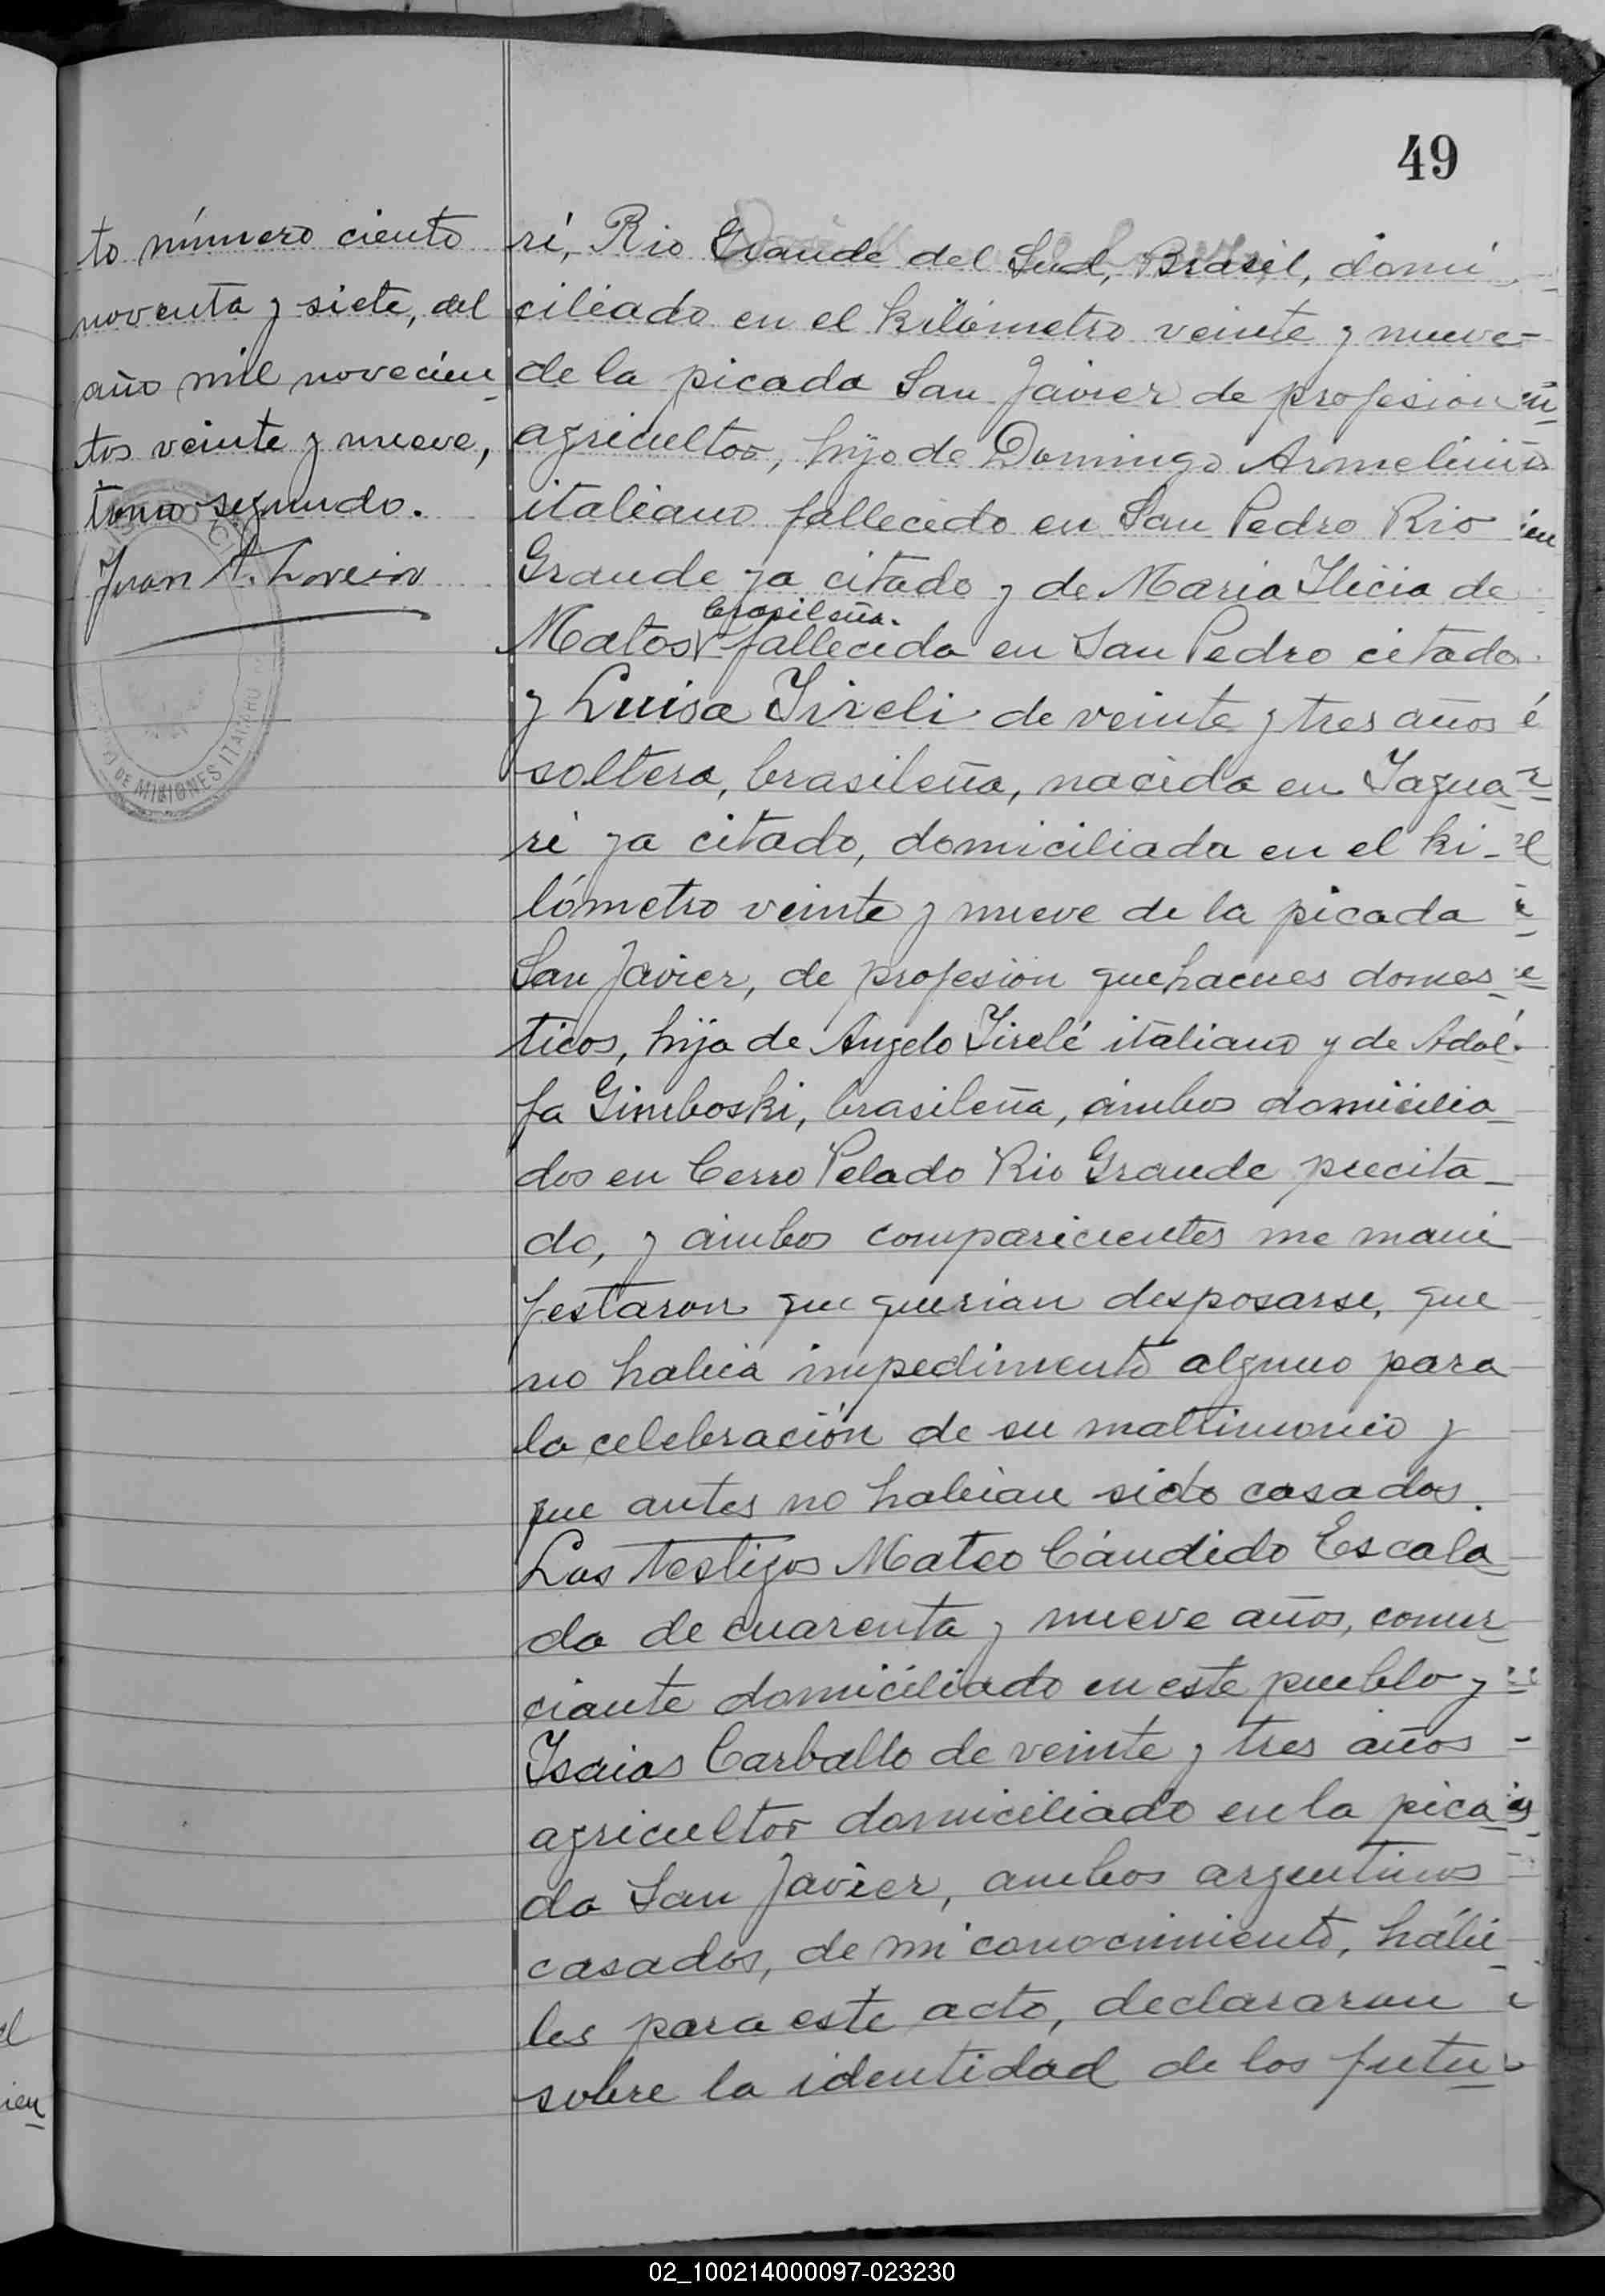 49
to número ciento
noventa y siete, del
año mil novecien
tos veinte y nueve,
tomo segundo.
Juan A.
DE MISIONES ITACARUARE
ri, Rio Grande del Sud, Brasil, domi
ciliado en el kilómetro veinte y nueve
de la picada San Javier de profesion
agricultor, hijo de Domingo Armelini
italiano fallecido en San Pedro Rio
Grande ya citado y de Maria Ilicia de
brasileña.
Matos fallecida en San Pedro citado
y Luisa Tireli de veinte y tres años
soltera, brasileña, nacida en Jagua
ri ya citado, domiciliada en el ki-
lómetro veinte y nueve de la picada
San Javier, de profesion quehaceres domes
ticos, hija de Angelo Tirelé italiano y de Adol
fa Gimboski, brasileña, ámbos domicilia
dos en Cerro Pelado Rio Grande precita
do, y ámbos comparecientes me mani
festaron que querian desposarse, que
no habia impedimento alguno para
la celebración de su matrimonio y
que antes no habian sido casados.
Los testigos Mateo Cándido Escala
da de cuarenta y nueve años, comer
ciante domiciliado en este pueblo y
Isaias Carballo de veinte y tres años
agricultor domiciliado en la pica
da San Javier, ambos argentinos
casados, de mi conocimiento, hábi
les para este acto, declararon
sobre la identidad de los futu
02_100214000097-023230